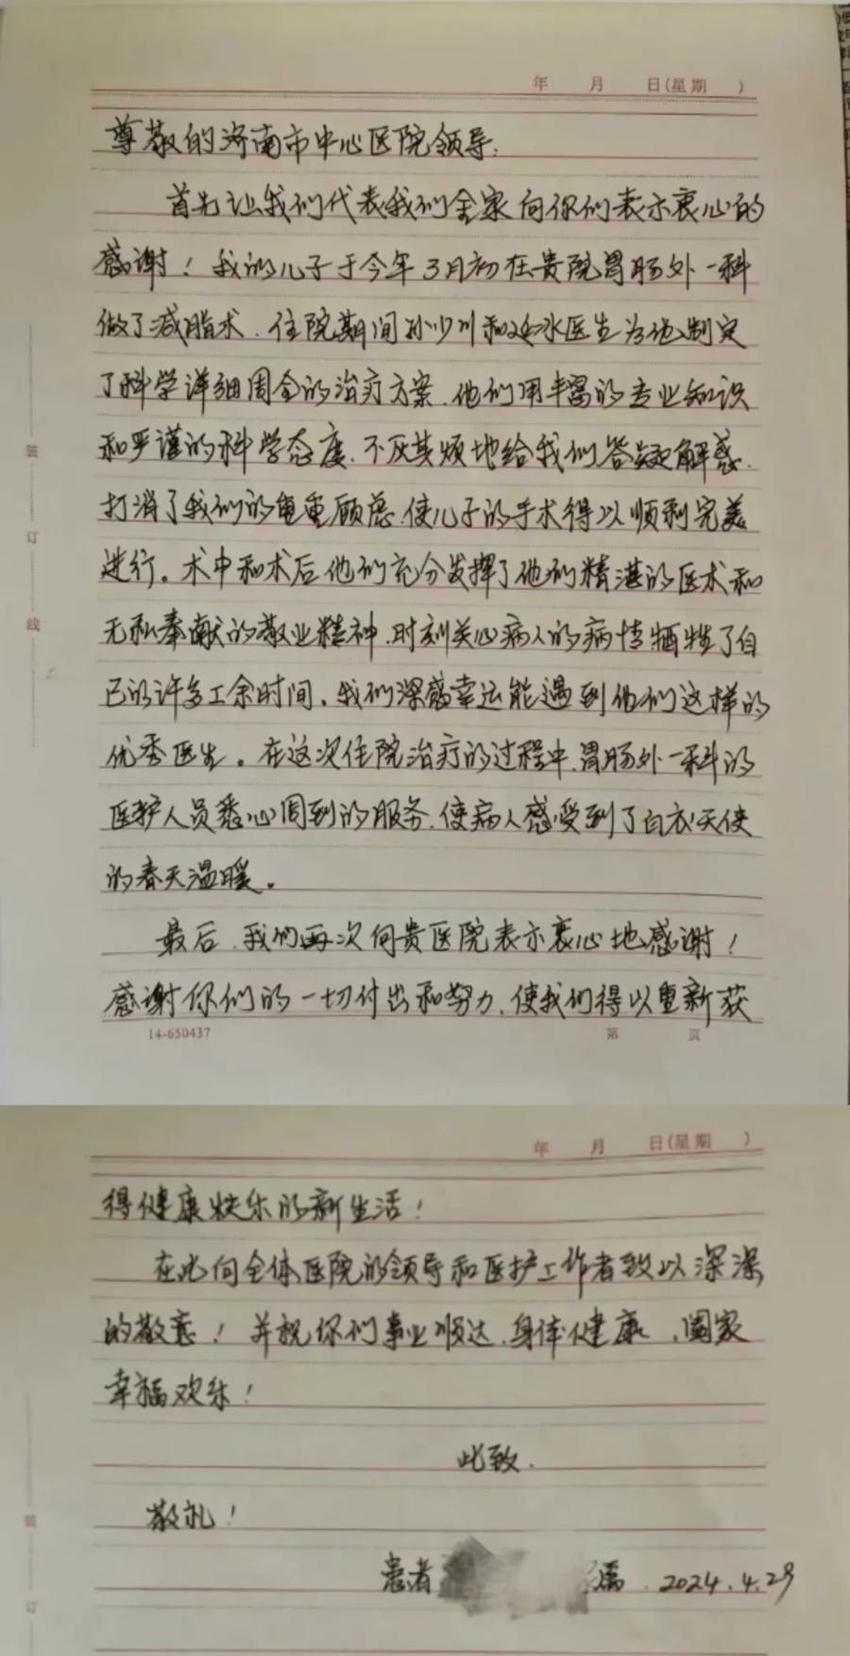 年 月 日(星期 )
尊敬的济南市中心医院领导:
首先让我们代表我们全家向你们表示衷心的
感谢！我的儿子于今年3月初在贵院胃肠外一科
做了减脂术.住院期间孙少川和冰医生为他制定
了科学详细周全的治疗方案.他们用丰富的专业知识
和严谨的科学态度.不厌其烦地给我们答疑解惑.
打消了我们的重重顾虑.使儿子的手术得以顺利完美
进行。术中和术后他们充分发挥了他们精湛的医术和
无私奉献的敬业精神.时刻关心病人的病情牺牲了自
己的许多工余时间。我们深感幸运能遇到他们这样的
优秀医生。在这次住院治疗的过程中.胃肠外一科的
医护人员悉心周到的服务.使病人感受到了白衣天使
的春天温暖。
最后.我们再次向贵医院表示衷心地感谢！
感谢你们的一切付出和努力.使我们得以重新获
14-650437 第 页
装
订
线
年 月 日(星期 )
得健康快乐的新生活！
在此向全体医院的领导和医护工作者致以深深
的敬意！并祝你们事业顺达.身体健康.阖家
幸福欢乐！
此致.
敬礼！
患者 属 2024.4.29
装
订